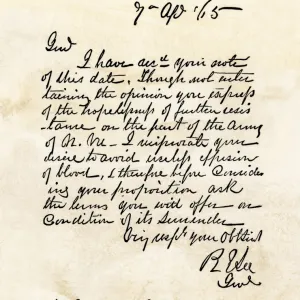 7th Apl '65
Genl
I have recd your note
of this date. Though not enter
taining the opinion you express
of the hopelessness of further resis
-tance on the part of the Army
of N. Va - I reciprocate your
desire to avoid useless effusion
of blood, & therefore before Consider
ing your proposition ask
the terms you will offer on
Condition of its Surrender
Very respy your Obt Svt
R E Lee
Genl